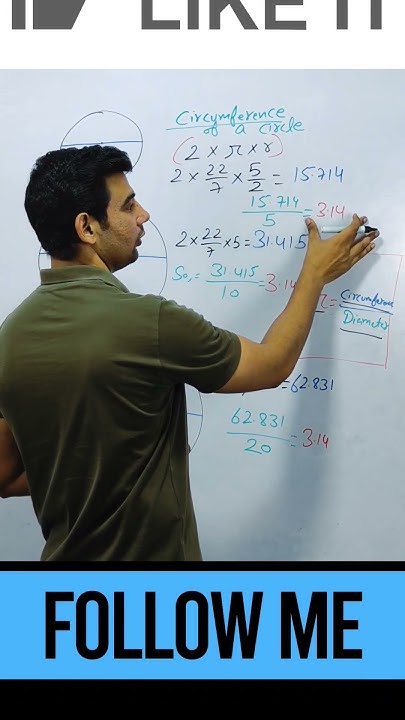 LIKE IT
Circumference
of a circle
(2 × π × r)
2 × 22/7 × 5/2 = 15.714
15.714/5 = 3.14
2 × 22/7 × 5 = 31.415
So, = 31.415/10 = 3.14
= Circumference/Diameter
= 62.831
62.831/20 = 3.14
FOLLOW ME